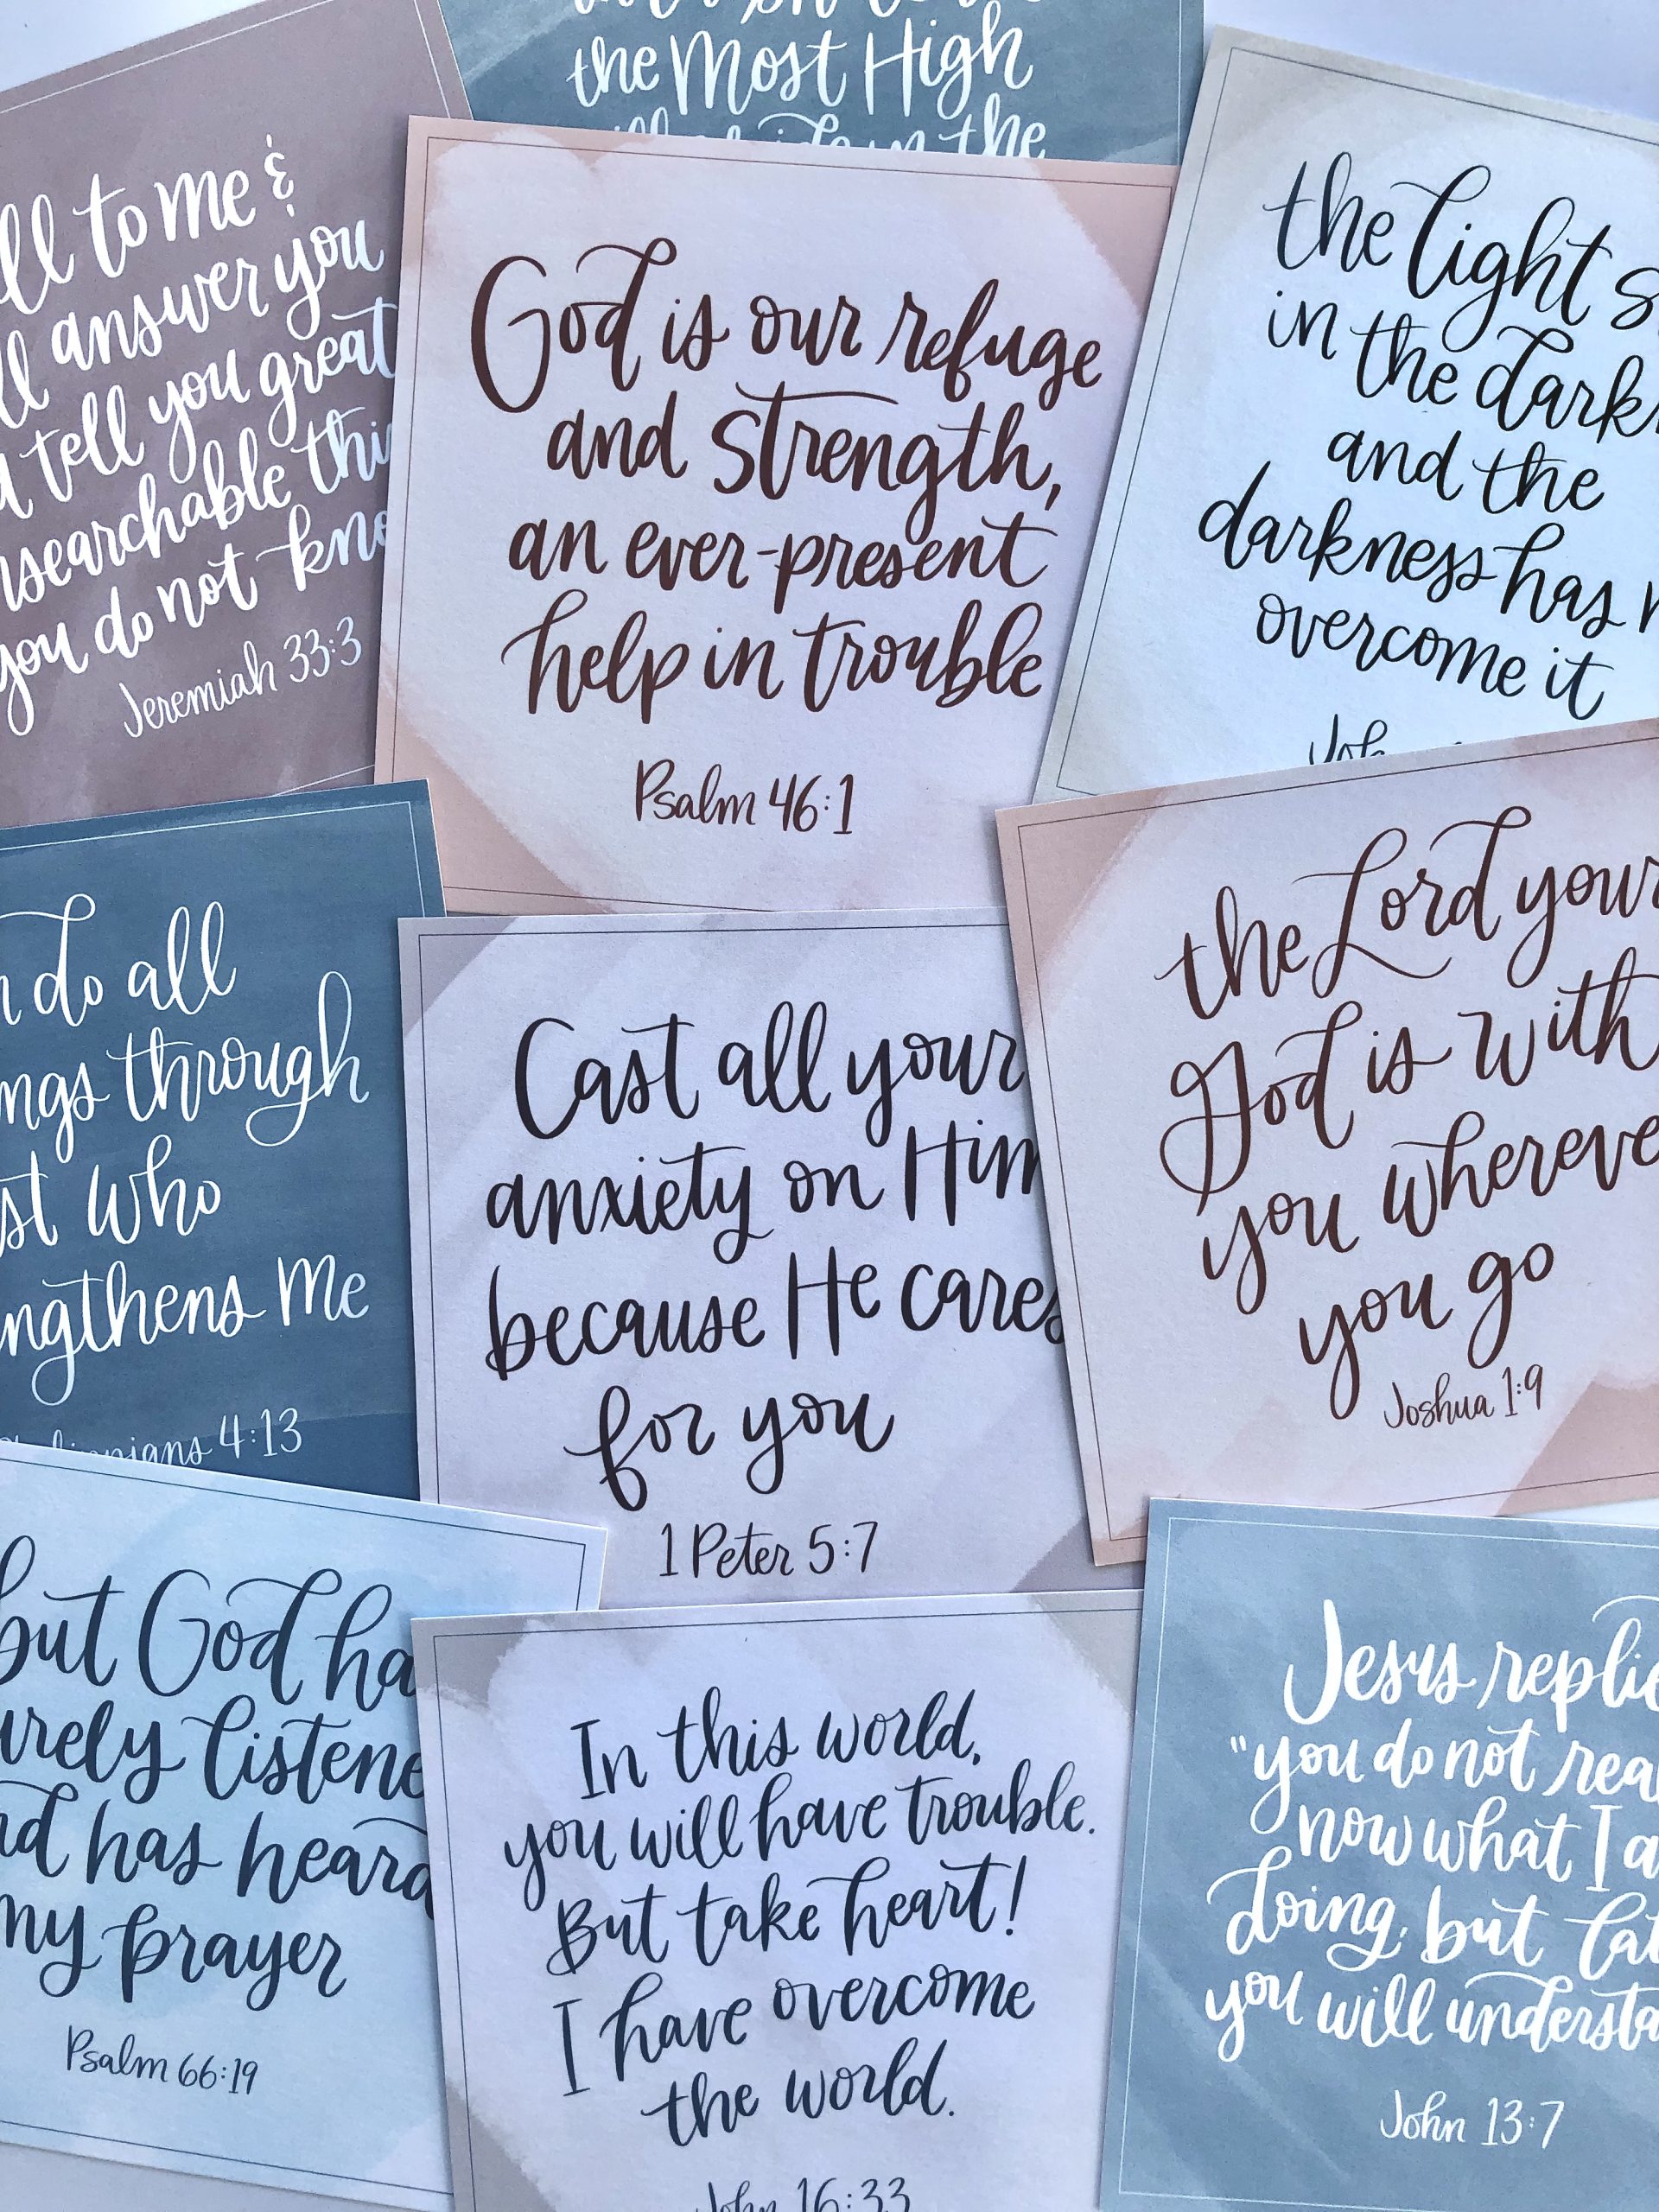 the Most High
the
ll to me &
ll answer you
d tell you great
nsearchable thi
you do not kno
Jeremiah 33:3
God is our refuge
and strength,
an ever-present
help in trouble
Psalm 46:1
the light s
in the dark
and the
darkness has n
overcome it
Joh
n do all
ngs through
st who
ngthens me
4:13
Cast all your
anxiety on Him
because He cares
for you
1 Peter 5:7
the Lord your
God is with
you whereve
you go
Joshua 1:9
but God ha
urely listene
nd has heard
my prayer
Psalm 66:19
In this world,
you will have trouble.
But take heart!
I have overcome
the world.
John 16:33
Jesus replie
"you do not rea
now what I a
doing, but lat
you will understa
John 13:7